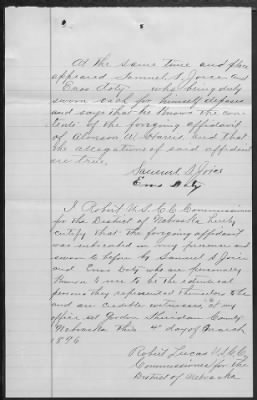 At the same time and place
appeared Samuel S. Joice and
Enos Doty who being duly
sworn each for himself deposes
and says that he knows the con-
tents of the forgoing affidavit
of Alonson W. Harris and that
the allegations of said affidavit
are true.
Samuel S. Joice
Enos Doty
I Robert U.S.C.C. Commissioner
for the District of Nebraska hereby
certify that the forgoing affidavit
was subscribed in my presence and
sworn to before by Samuel S Joice
and Enos Doty who are personally
known to me to be the identical
persons they represented themselves
and are credible witnesses at my
office at Gordon Sheridan County
Nebraska this 4" day of March
1896
Robert Lucas U.S.C.C.
Commissioner for the
District of Nebraska